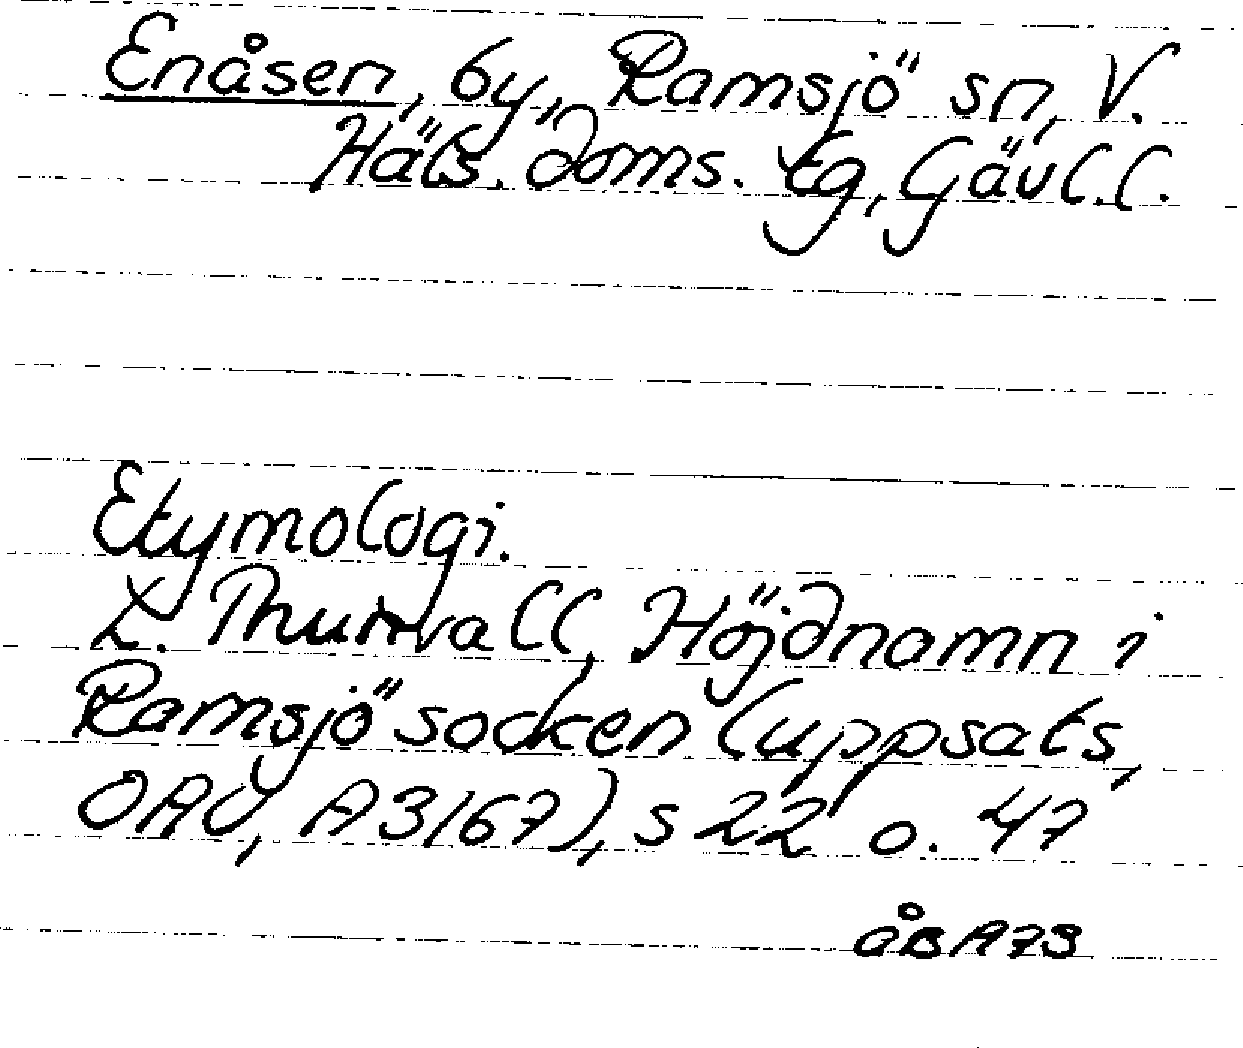 Enåsen, by, Ramsjö sn, V.
Häls. doms. tg, Gävl. l.
Etymologi.
L. Thunvall, Höjdnamn i
Ramsjö socken (uppsats,
OAU, A3167), s 22 o. 47
ÅBA 73